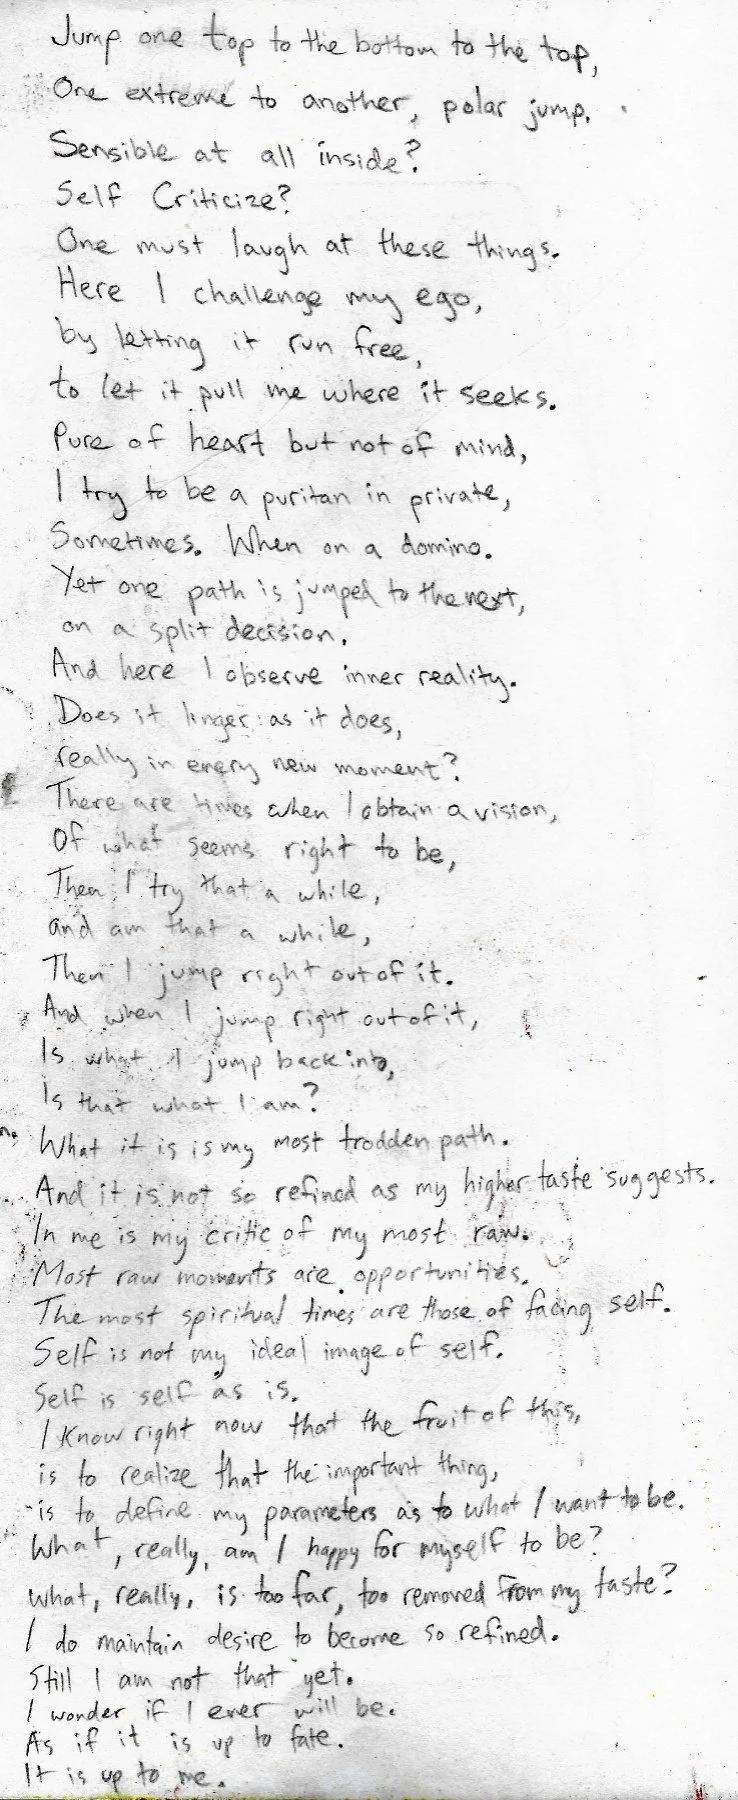 Jump one top to the bottom to the top,
One extreme to another, polar jump.
Sensible at all inside?
Self Criticize?
One must laugh at these things.
Here I challenge my ego,
by letting it run free,
to let it pull me where it seeks.
Pure of heart but not of mind,
I try to be a puritan in private,
Sometimes. When on a domino.
Yet one path is jumped to the next,
on a split decision.
And here I observe inner reality.
Does it linger as it does,
really in every new moment?
There are times when I obtain a vision,
Of what seems right to be,
Then I try that a while,
and am that a while,
Then I jump right out of it.
And when I jump right out of it,
Is what I jump back into,
Is that what I am?
What it is is my most trodden path.
And it is not so refined as my higher taste suggests.
In me is my critic of my most raw.
Most raw moments are opportunities.
The most spiritual times are those of facing self.
Self is not my ideal image of self.
Self is self as is.
I Know right now that the fruit of this,
is to realize that the important thing,
is to define my parameters as to what I want to be.
What, really, am I happy for myself to be?
What, really, is too far, too removed from my taste?
I do maintain desire to become so refined.
Still I am not that yet.
I wonder if I ever will be.
As if it is up to fate.
It is up to me.